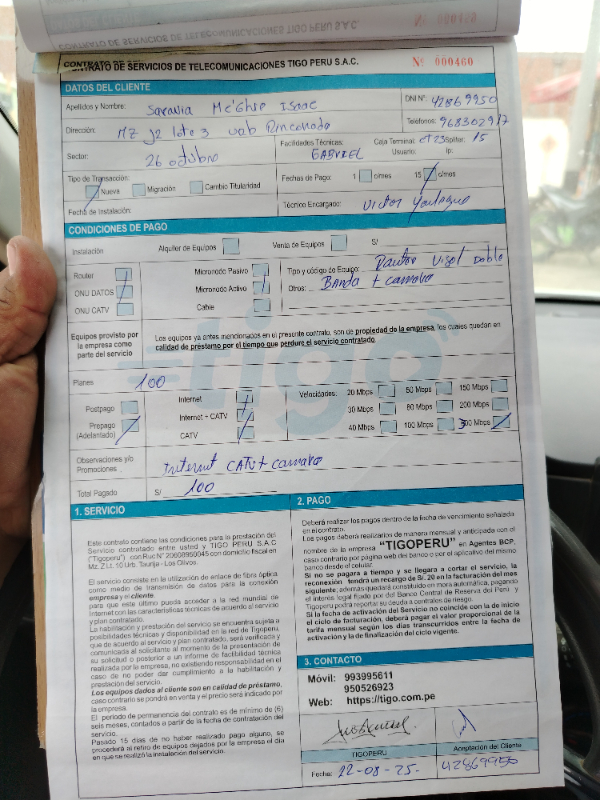 CONTRATO DE SERVICIOS DE TELECOMUNICACIONES TIGO PERU S.A.C. Nº 000460
DATOS DEL CLIENTE
Apellidos y Nombre: Saravia Isaac DNI Nº 42869950
Dirección: Mz J2 lote 3 Rinconada Teléfonos: 968302917
Sector: 26 octubre Facilidades Técnicas: GABRIEL Caja Terminal: 15
Usuario: Ip:
Tipo de Transacción:
Nueva Migración Cambio Titularidad Fechas de Pago: 1 c/mes 15 c/mes
Fecha de Instalación: Técnico Encargado: Victor
CONDICIONES DE PAGO
Instalación Alquiler de Equipos Venta de Equipos S/
Router Micronodo Pasivo Tipo y código de Equipo:
ONU DATOS Micronodo Activo Otros: Banda + camara
ONU CATV Cable
Equipos provisto por la empresa como parte del servicio
Los equipos ya antes mencionados en el presente contrato, son de propiedad de la empresa, los cuales quedan en calidad de préstamo por el tiempo que perdure el servicio contratado.
tigo
Planes 100
Postpago Internet Velocidades: 20 Mbps 50 Mbps 150 Mbps
Prepago (Adelantado) Internet + CATV 30 Mbps 80 Mbps 200 Mbps
CATV 40 Mbps 100 Mbps 300 Mbps
Observaciones y/o Promociones: Internet CATV + camara
Total Pagado S/ 100
1. SERVICIO
Este contrato contiene las condiciones para la prestación del
Servicio contratado entre usted y TIGO PERU S.A.C
("Tigoperu") con Ruc N° con domicilio fiscal en
Mz. Z Lt. 10 Urb. Taurija - Los Olivos.
El servicio consiste en la utilización de enlace de fibra óptica
como medio de transmisión de datos para la conexión
empresa y el cliente
para que este último pueda acceder a la red mundial de
Internet con las características técnicas de acuerdo al servicio
y plan contratado.
La habilitación y prestación del servicio se encuentra sujeta a
posibilidades técnicas y disponibilidad en la red de Tigoperu,
que de acuerdo al servicio y plan contratado, será verificada y
comunicada al solicitante al momento de la presentación de
su solicitud o posterior a un informe de factibilidad técnica
realizada por la empresa, no existiendo responsabilidad en el
caso de no poder dar cumplimiento a la habilitación y
prestación del servicio.
Los equipos dados al cliente son en calidad de préstamo,
caso contrario se pondrá en venta y el precio será indicado por
la empresa.
El periodo de permanencia del contrato es de mínimo de (6)
seis meses, contados a partir de la fecha de contratación del
servicio.
Pasado 15 días de no haber realizado pago alguno, se
procederá al retiro de equipos dejados por la empresa el día
en que se realizó la instalación del servicio.
2. PAGO
Deberá realizar los pagos dentro de la fecha de vencimiento señalada
en el contrato.
Los pagos deberá realizarlos de manera mensual y anticipada con el
nombre de la empresa "TIGOPERU" en Agentes BCP,
caso contrario por pagina web del banco o por el aplicativo del mismo
banco desde el celular.
Si no se paga a tiempo y se llegara a cortar el servicio, la
reconexión tendrá un recargo de S/. 20 en la facturación del mes
siguiente, además quedará constituido en mora automática, pagando
el interés legal fijado por del Banco Central de Reserva del Perú y
Tigoperu podrá reportar su deuda a centrales de riesgo.
Si la fecha de activación del Servicio no coincide con la de inicio
del ciclo de facturación, deberá pagar el valor proporcional de la
tarifa mensual según los días transcurridos entre la fecha de
activación y la de finalización del ciclo vigente.
3. CONTACTO
Móvil: 993995611
950526923
Web: https://tigo.com.pe
TIGOPERU Aceptación del Cliente
Fecha: 22-08-25. 42869950